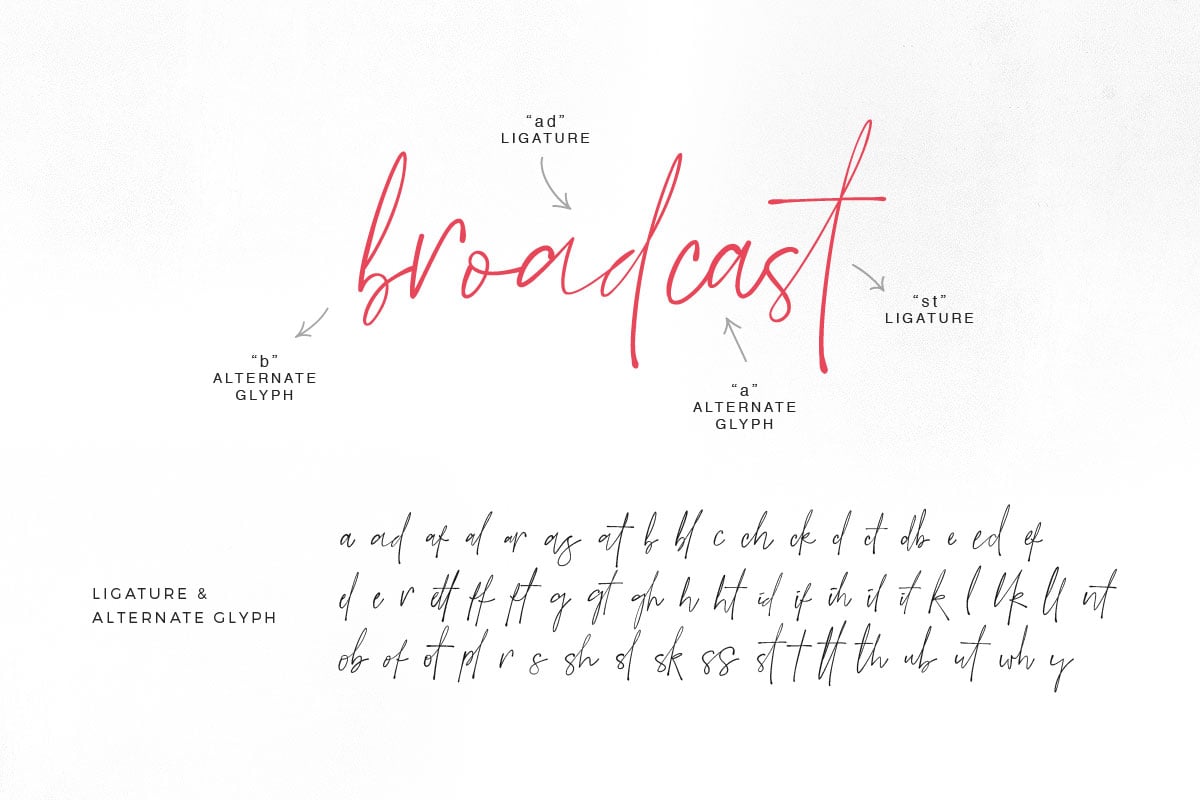 “ad”
LIGATURE
broadcast
“st”
LIGATURE
“b”
ALTERNATE
GLYPH
“a”
ALTERNATE
GLYPH
LIGATURE &
ALTERNATE GLYPH
a ad af al ar as at b bl c ch ck d ct db e ed ef
el e r ett ff ft g gt gh h ht id if ih il it k l lk ll nt
ob of ot pl r s sh sl sk ss st t tt th ub ut wh y